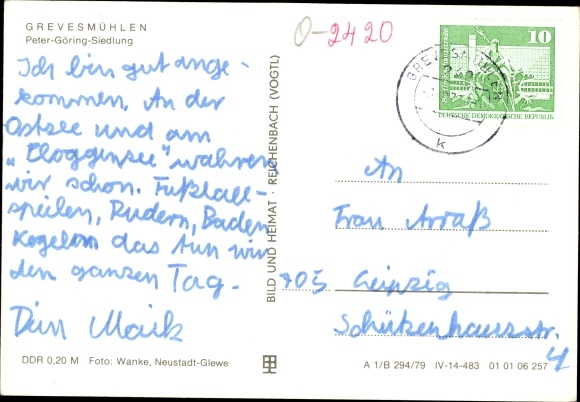 GREVESMÜHLEN
Peter-Göring-Siedlung
Ich bin gut ange-
kommen. An der
Ostsee und am
„Ploggensee" wahren
wir schon. Fußball-
spielen, Rudern, Baden
Kegeln das tun wir
den ganzen Tag.
Dein Maik
DDR 0,20 M Foto: Wanke, Neustadt-Glewe
BILD UND HEIMAT · REICHENBACH (VOGTL)
0-2420
10
DEUTSCHE DEMOKRATISCHE REPUBLIK
k
An
Frau Arraß
705 Leipzig
Schützenhausstr.
4
A 1/B 294/79 IV-14-483 01 01 06 257